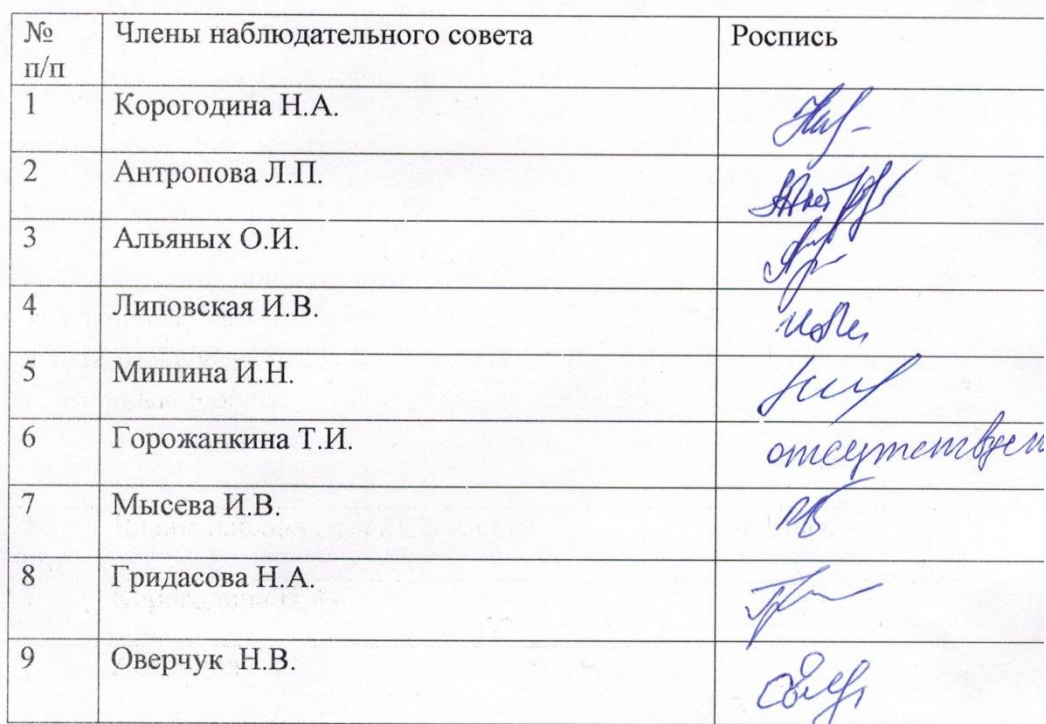 № Члены наблюдательного совета Роспись
п/п
1 Корогодина Н.А.
2 Антропова Л.П.
3 Альяных О.И.
4 Липовская И.В.
5 Мишина И.Н.
6 Горожанкина Т.И. отсутствует
7 Мысева И.В.
8 Гридасова Н.А.
9 Оверчук Н.В.